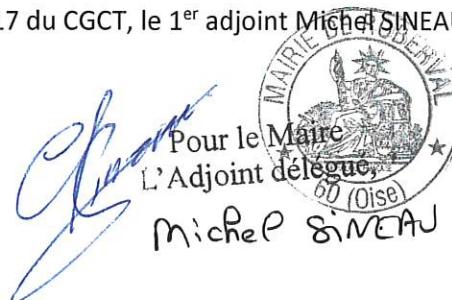 17 du CGCT, le 1er adjoint Michel SINEAU
MAIRIE DE ROBERVAL
Pour le Maire
L'Adjoint délégué,
60 (Oise)
Michel SINEAU